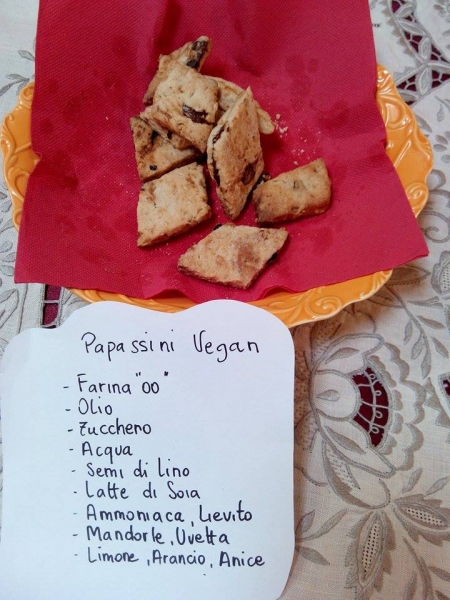 Papassini Vegan
- Farina "00"
- Olio
- Zucchero
- Acqua
- Semi di lino
- Latte di Soia
- Ammoniaca, Lievito
- Mandorle, Uvetta
- Limone, Arancio, Anice